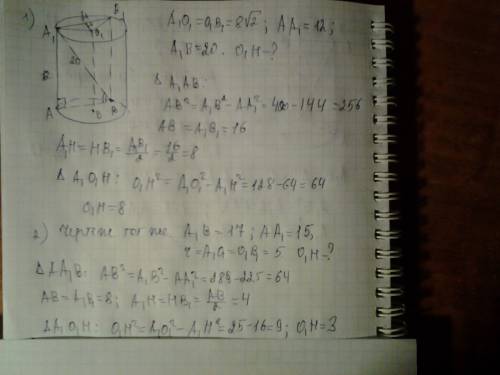 1) A₁O₁ = O₁B₁ = 8√2 ; AA₁ = 12 ;
A₁B = 20. O₁H - ?
A₁ H B₁ B₁
20
A O B
△ A₁AB:
AB² = A₁B² - AA₁² = 400 - 144 = 256
AB = A₁B₁ = 16
A₁H = HB₁ = A₁B₁/2 = 16/2 = 8
△ A₁O₁H: O₁H² = A₁O₁² - A₁H² = 128 - 64 = 64
O₁H = 8
2) Чертёж тот же. A₁B = 17 ; AA₁ = 15,
r = A₁O₁ = O₁B₁ = 5 O₁H - ?
△ AA₁B: AB² = A₁B² - AA₁² = 289 - 225 = 64
AB = A₁B₁ = 8 ; A₁H = HB₁ = AB/2 = 4
△ A₁O₁H: O₁H² = A₁O₁² - A₁H² = 25 - 16 = 9 ; O₁H = 3